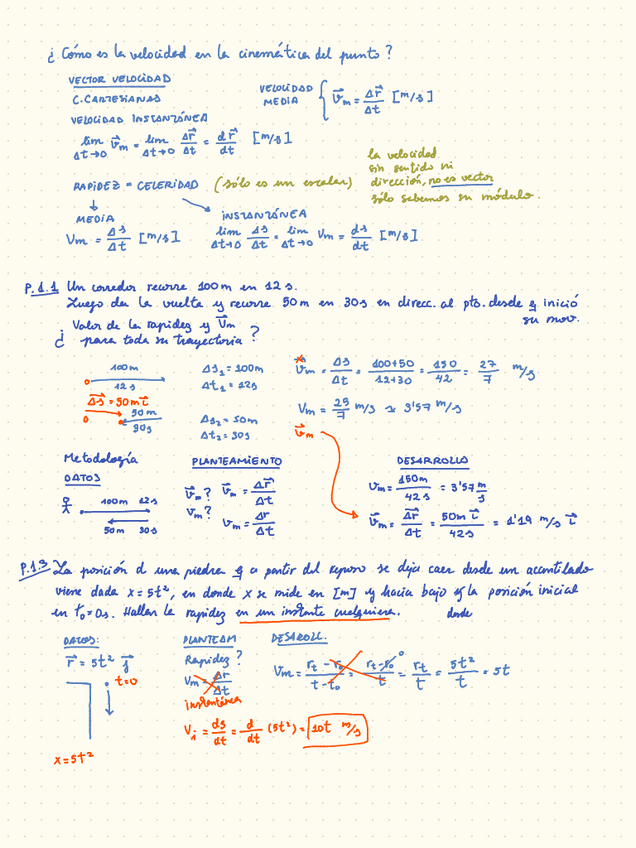 ¿Cómo es la velocidad en la cinemática del punto?
VECTOR VELOCIDAD
C.CARTESIANAS
VELOCIDAD MEDIA { v⃗m = Δr⃗/Δt [m/s]
VELOCIDAD INSTANTÁNEA
lim Δt→0 v⃗m = lim Δt→0 Δr⃗/Δt = dr⃗/dt [m/s]
RAPIDEZ = CELERIDAD (sólo es un escalar)
la velocidad
sin sentido ni
dirección, no es vector
sólo sabemos su módulo.
MEDIA
Vm = Δs/Δt [m/s]
INSTANTÁNEA
lim Δt→0 Δs/Δt = lim Δt→0 Vm = ds/dt [m/s]
P.1.1 Un corredor recorre 100m en 12s.
Luego da la vuelta y recorre 50m en 30s en direcc. al pto. desde q inició
su mov.
¿ Valor de la rapidez y v⃗m
para toda su trayectoria ?
100m
12s
Δs⃗ = 50m i⃗
50m
30s
ΔS1 = 100m
Δt1 = 12s
ΔS2 = 50m
Δt2 = 30s
v⃗m = Δs/Δt = 100+50/12+30 = 150/42 = 27/7 m/s
Vm = 25/7 m/s ≈ 3'57 m/s
v⃗m
Metodología
DATOS
100m 12s
50m 30s
PLANTEAMIENTO
v⃗m? v⃗m = Δr⃗/Δt
vm? vm = Δr/Δt
DESARROLLO
vm = 150m/42s = 3'57 m/s
v⃗m = Δr⃗/Δt = 50m i⃗/42s = 1'19 m/s i⃗
P.1.3 La posición d una piedra q a partir del reposo se deja caer desde un acantilado
viene dada x = 5t², en donde x se mide en [m] y hacia bajo y la posición inicial
en t0=0s. Hallar la rapidez en un instante cualquiera.
donde
DATOS:
r⃗ = 5t² j⃗
t=0
x=5t²
PLANTEAM
Rapidez?
Vm = Δr/Δt
instantánea
Vi = ds/dt = d/dt (5t²) = 10t m/s
DESAROLL.
Vm = rt - r0/t - t0 = rt - r0/t = rt/t = 5t²/t = 5t
0